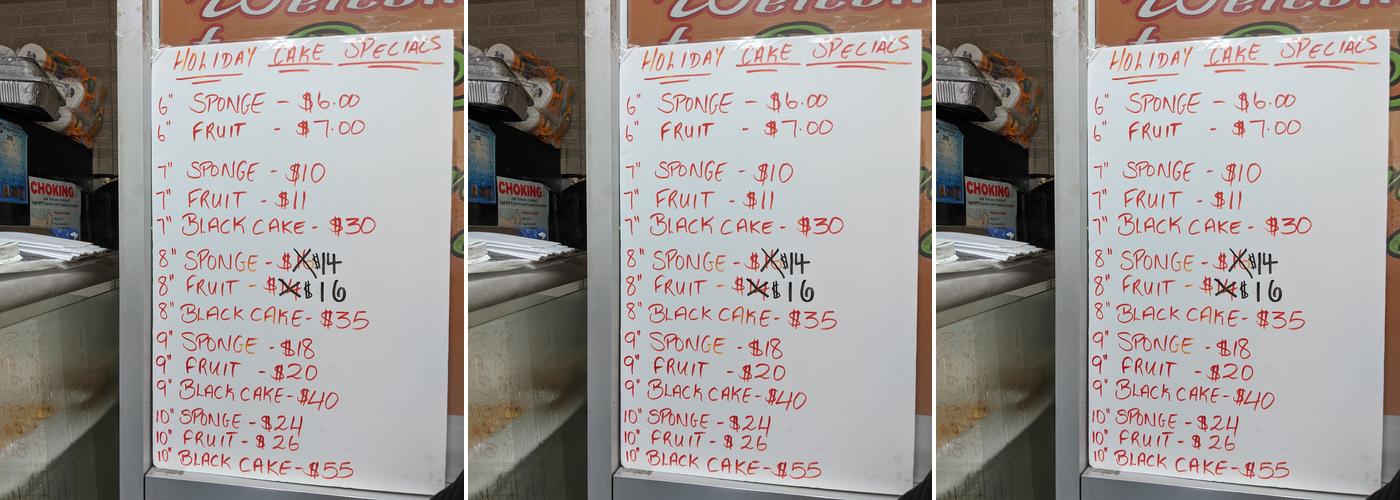 Welcom
HOLIDAY CAKE SPECIALS
6" SPONGE - $6.00
6" FRUIT - $7.00
7" SPONGE - $10
7" FRUIT - $11
7" BLACK CAKE - $30
8" SPONGE - $14
8" FRUIT - $16
8" BLACK CAKE - $35
9" SPONGE - $18
9" FRUIT - $20
9" BLACK CAKE - $40
10" SPONGE - $24
10" FRUIT - $26
10" BLACK CAKE - $55
CHOKING
Welcom
HOLIDAY CAKE SPECIALS
6" SPONGE - $6.00
6" FRUIT - $7.00
7" SPONGE - $10
7" FRUIT - $11
7" BLACK CAKE - $30
8" SPONGE - $14
8" FRUIT - $16
8" BLACK CAKE - $35
9" SPONGE - $18
9" FRUIT - $20
9" BLACK CAKE - $40
10" SPONGE - $24
10" FRUIT - $26
10" BLACK CAKE - $55
CHOKING
Welcom
HOLIDAY CAKE SPECIALS
6" SPONGE - $6.00
6" FRUIT - $7.00
7" SPONGE - $10
7" FRUIT - $11
7" BLACK CAKE - $30
8" SPONGE - $14
8" FRUIT - $16
8" BLACK CAKE - $35
9" SPONGE - $18
9" FRUIT - $20
9" BLACK CAKE - $40
10" SPONGE - $24
10" FRUIT - $26
10" BLACK CAKE - $55
CHOKING